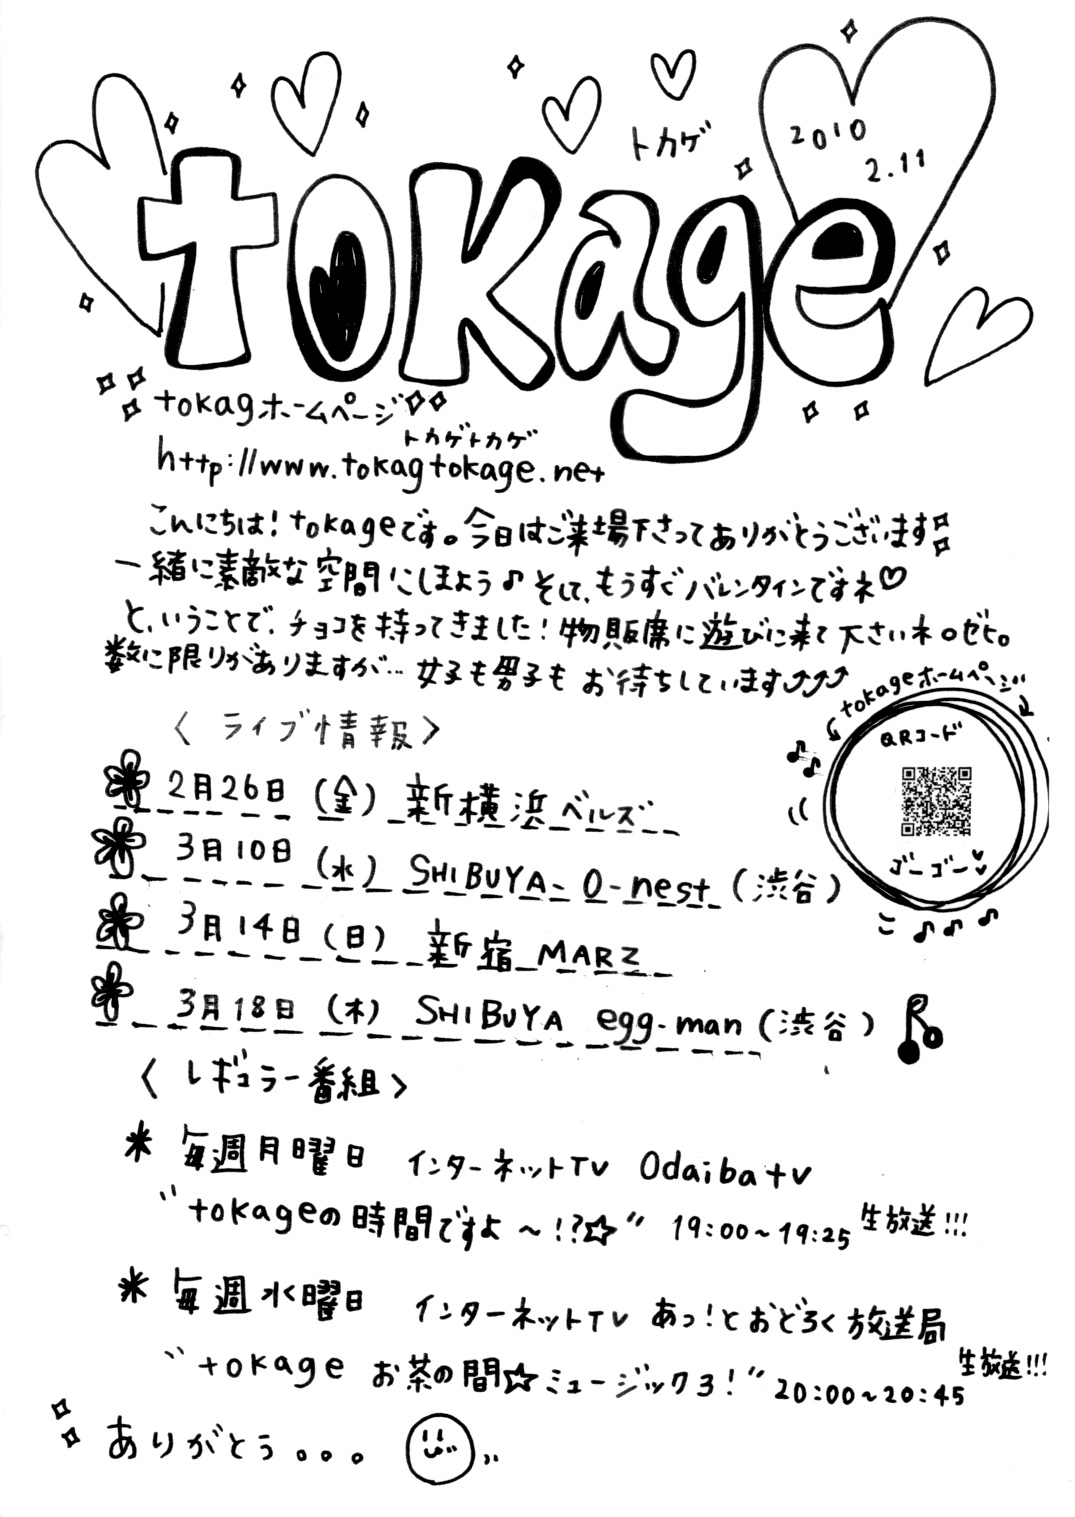 トカゲ
2010
2.11
tokage
tokagホームページ
トカゲトカゲ
http://www.tokagtokage.net
こんにちは!tokageです。今日はご来場下さってありがとうございます
一緒に素敵な空間にしまよう♪そして、もうすぐバレンタインですネ♡
と、いうことで、チョコを持ってきました!物販席に遊びに来て下さいネ。ぜひ。
数に限りがありますが…女子も男子もお待ちしています⤴⤴⤴
tokageホームページ
QRコード
ゴーゴー
〈ライブ情報〉
2月26日(金)新横浜ベルズ
3月10日(水)SHIBUYA-O-nest(渋谷)
3月14日(日)新宿MARZ
3月18日(木)SHIBUYA egg-man(渋谷)
〈レギュラー番組〉
*毎週月曜日 インターネットTV Odaiba tv
"tokageの時間ですよ~!?☆" 19:00~19:25 生放送!!!
*毎週水曜日 インターネットTV あっ!とおどろく放送局
"tokage お茶の間☆ミュージック3!" 20:00~20:45 生放送!!!
ありがとう。。。